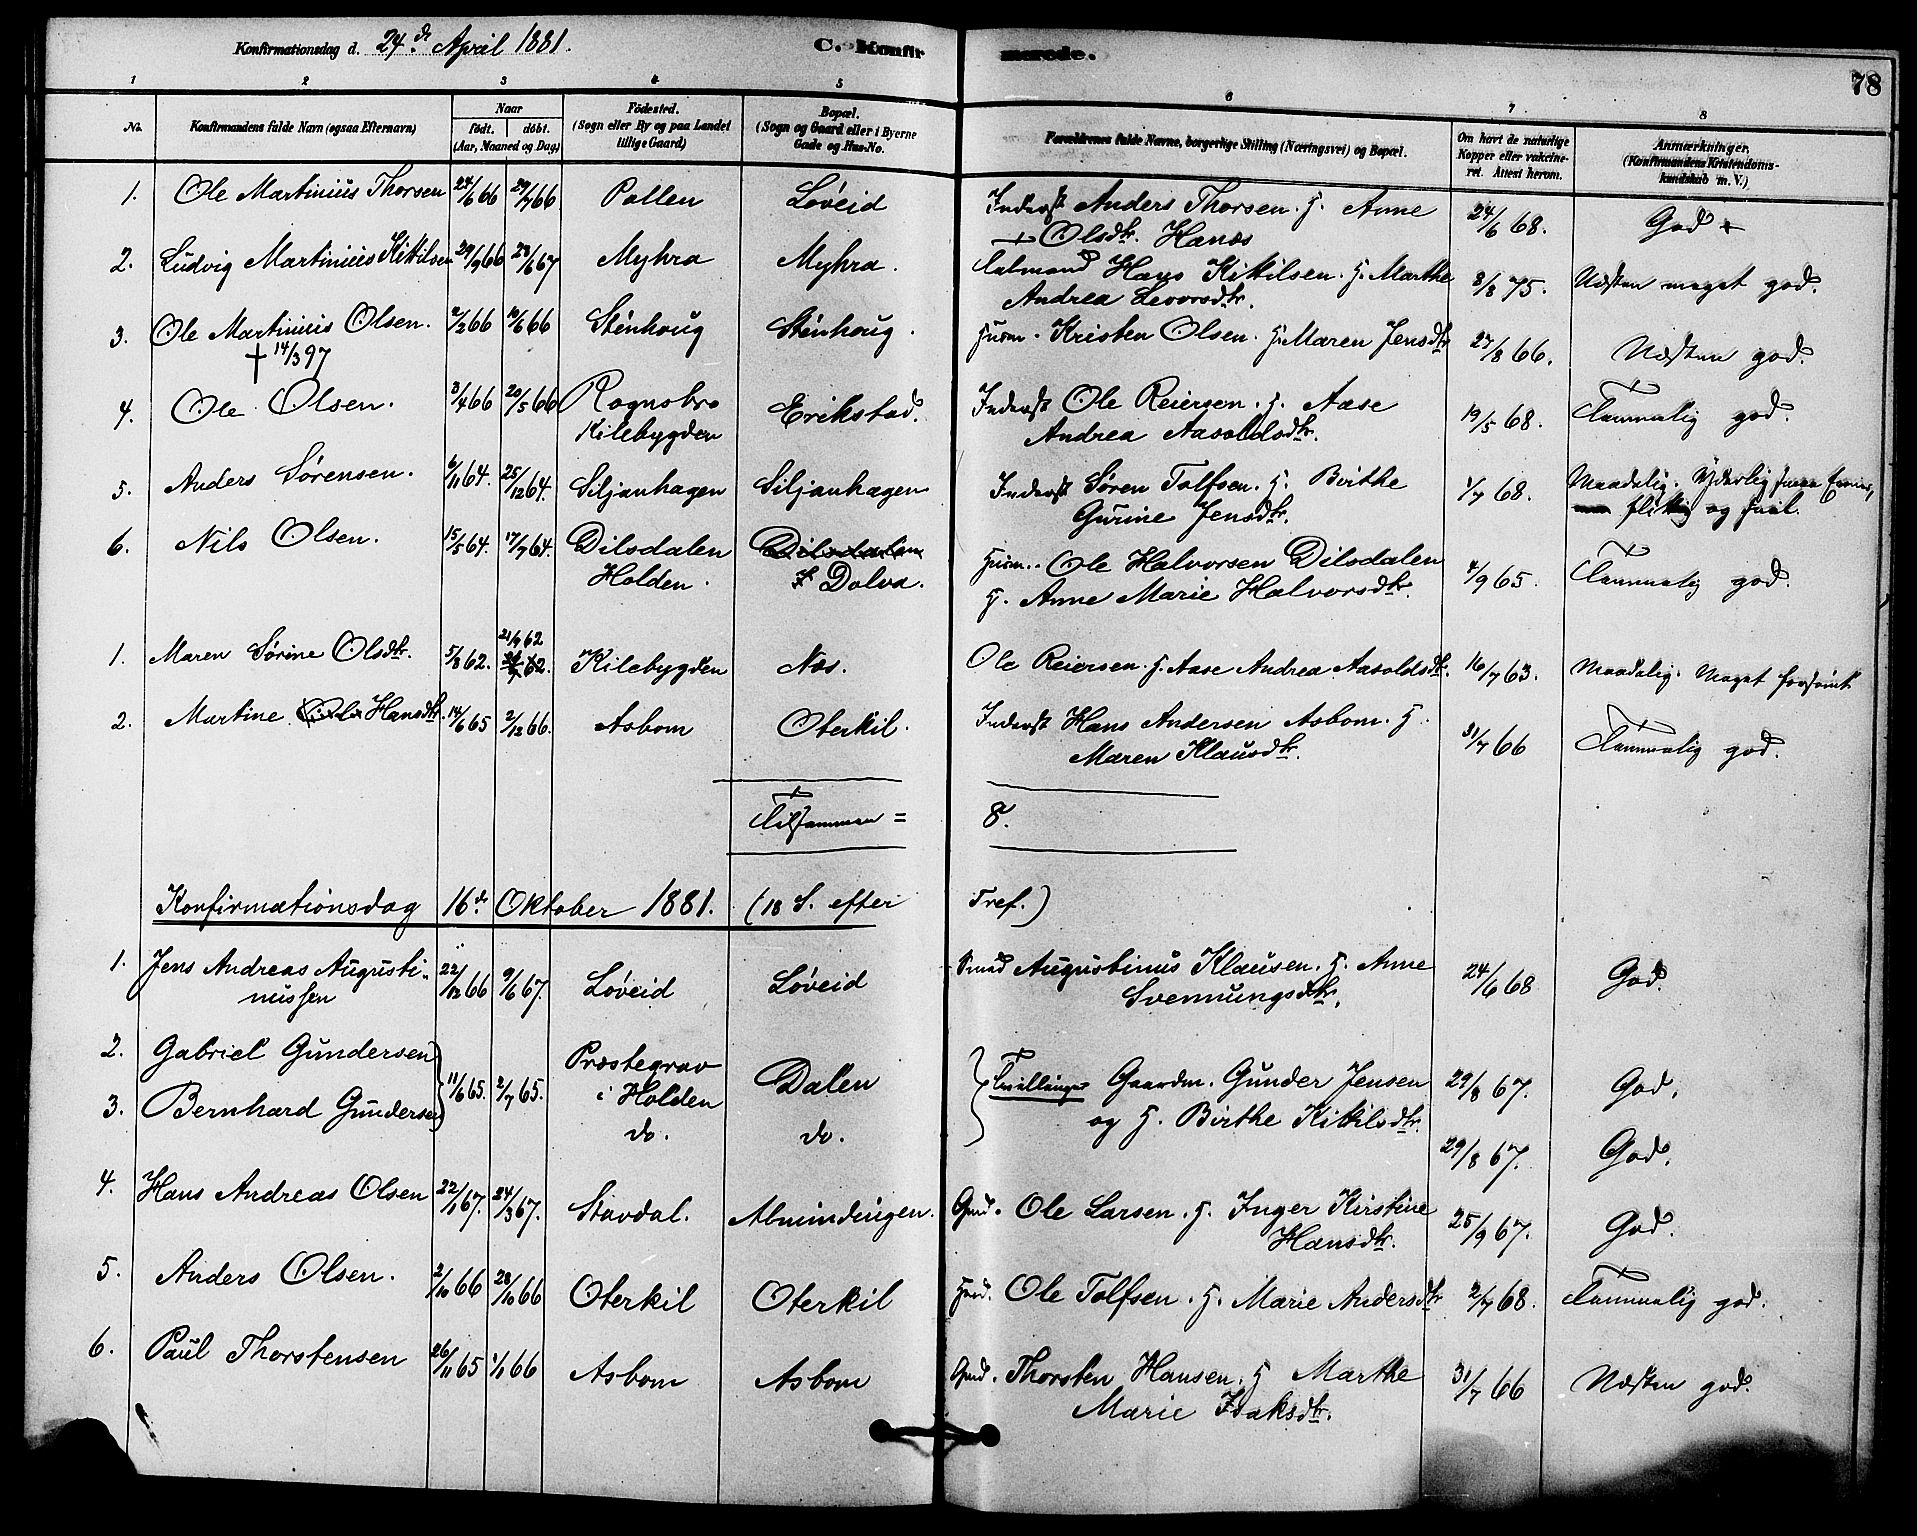 Konfirmationsdag d. 24.de April 1881. C. Konfirmerede. 78
1 2 3 4 5 6 7 8
No. Konfirmandens fulde Navn (ogsaa Efternavn) Naar født. døbt. (Aar, Maaned og Dag) Fødested. (Sogn eller By og paa Landet tillige Gaard) Bopæl. (Sogn og Gaard eller i Byerne Gade og Hus-No. Forældrenes fulde Navne, borgerlige Stilling (Næringsvei) og Bopæl. Om havt de naturlige Kopper eller vakcineret. Attest herom. Anmærkninger, (Konfirmandens Kristendomskundskab m. V.)
1. Ole Martinius Thorsen 24/6 66 29/7 66 Pollen Løveid Inderst Anders Thorsen. H. Anne Olsdtr. Hanås 24/6 68. God
2. Ludvig Martinius Kittilsen 29/9 66 28/6 67 Myhra Myhra. Hans Kittilsen. H. Marthe Andrea Levorsdtr. 8/8 75. Næsten meget god.
3. Ole Martinius Olsen. 2/2 66 10/6 66 Sténhoug Sténhoug. Husm. Kristen Olsen. H. Maren Jensdtr 27/8 66. Næsten god.
† 14/3 97
4. Ole Olsen. 3/4 66 20/5 66 Rognsbro Kilebygden Erikstad. Inderst Ole Reiersen. H. Aase Andrea Aasoldsdtr. 19/5 68. Temmelig god.
5. Anders Sørensen. 6/11 64. 25/12 64. Siljanhagen Siljanhagen Inderst Søren Tolfsen. H. Birthe Gurine Jensdtr. 1/7 68. Maadelig. Yderlig flittig og snil.
6. Nils Olsen. 15/5 64. 17/7 64. Dilsdalen Holden. Dilsdalen Dolva. Husm. Ole Halvorsen Dilsdalen H. Anne Marie Halvorsdtr. 4/9 65. Temmelig god.
1. Maren Sørine Olsdtr. 5/8 62. 21/9 62 Kilebygden Næs. Ole Reiersen. H. Aase Andrea Aasoldsdtr. 16/7 63. Maadelig. Meget forsømt
2. Martine Ols Hansdtr. 14/6 65 2/12 66. Asbom Oterkil. Inderst Hans Andersen Asbom. H. Maren Klausdtr. 31/7 66 Temmelig god.
Tilsammen = 8.
Konfirmationsdag 16de Oktober 1881. (18 S. efter Tref.)
1. Jens Andreas Augustinussen 22/12 66 9/6 67. Løveid Løveid Smed Augustinus Klausen. H. Anne Svennungsdtr. 24/6 68 God.
2. Gabriel Gundersen 11/6 65. 2/7 65. Præstegrav i Holden Dalen Tvillinger Gaardm. Gunder Jensen og H. Birthe Kittilsdtr. 29/8 67. God.
3. Bernhard Gundersen do. do. 29/8 67. God.
4. Hans Andreas Olsen 22/1 67. 24/3 67. Stavdal. Almindingen. Gmd. Ole Larsen. H. Inger Kirstine Hansdtr. 25/9 67. God.
5. Anders Olsen. 2/10 66 28/10 66 Oterkil Oterkil Hmd. Ole Tolfsen. H. Marie Andersdtr 2/7 68. Temmelig god.
6. Paul Thorstensen 26/11 65 1/1 66 Asbom Asbom Gmd. Thorsten Hansen. H Marthe Marie Isaksdtr. 31/7 66 Næsten god.